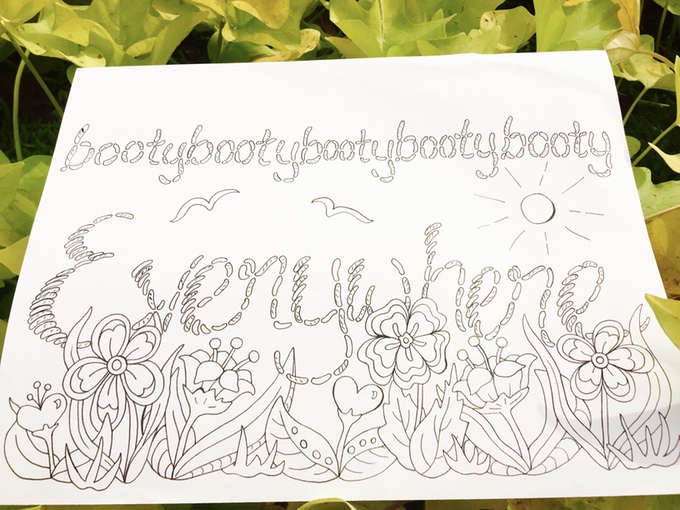 bootybootybootybootybooty
Everywhere